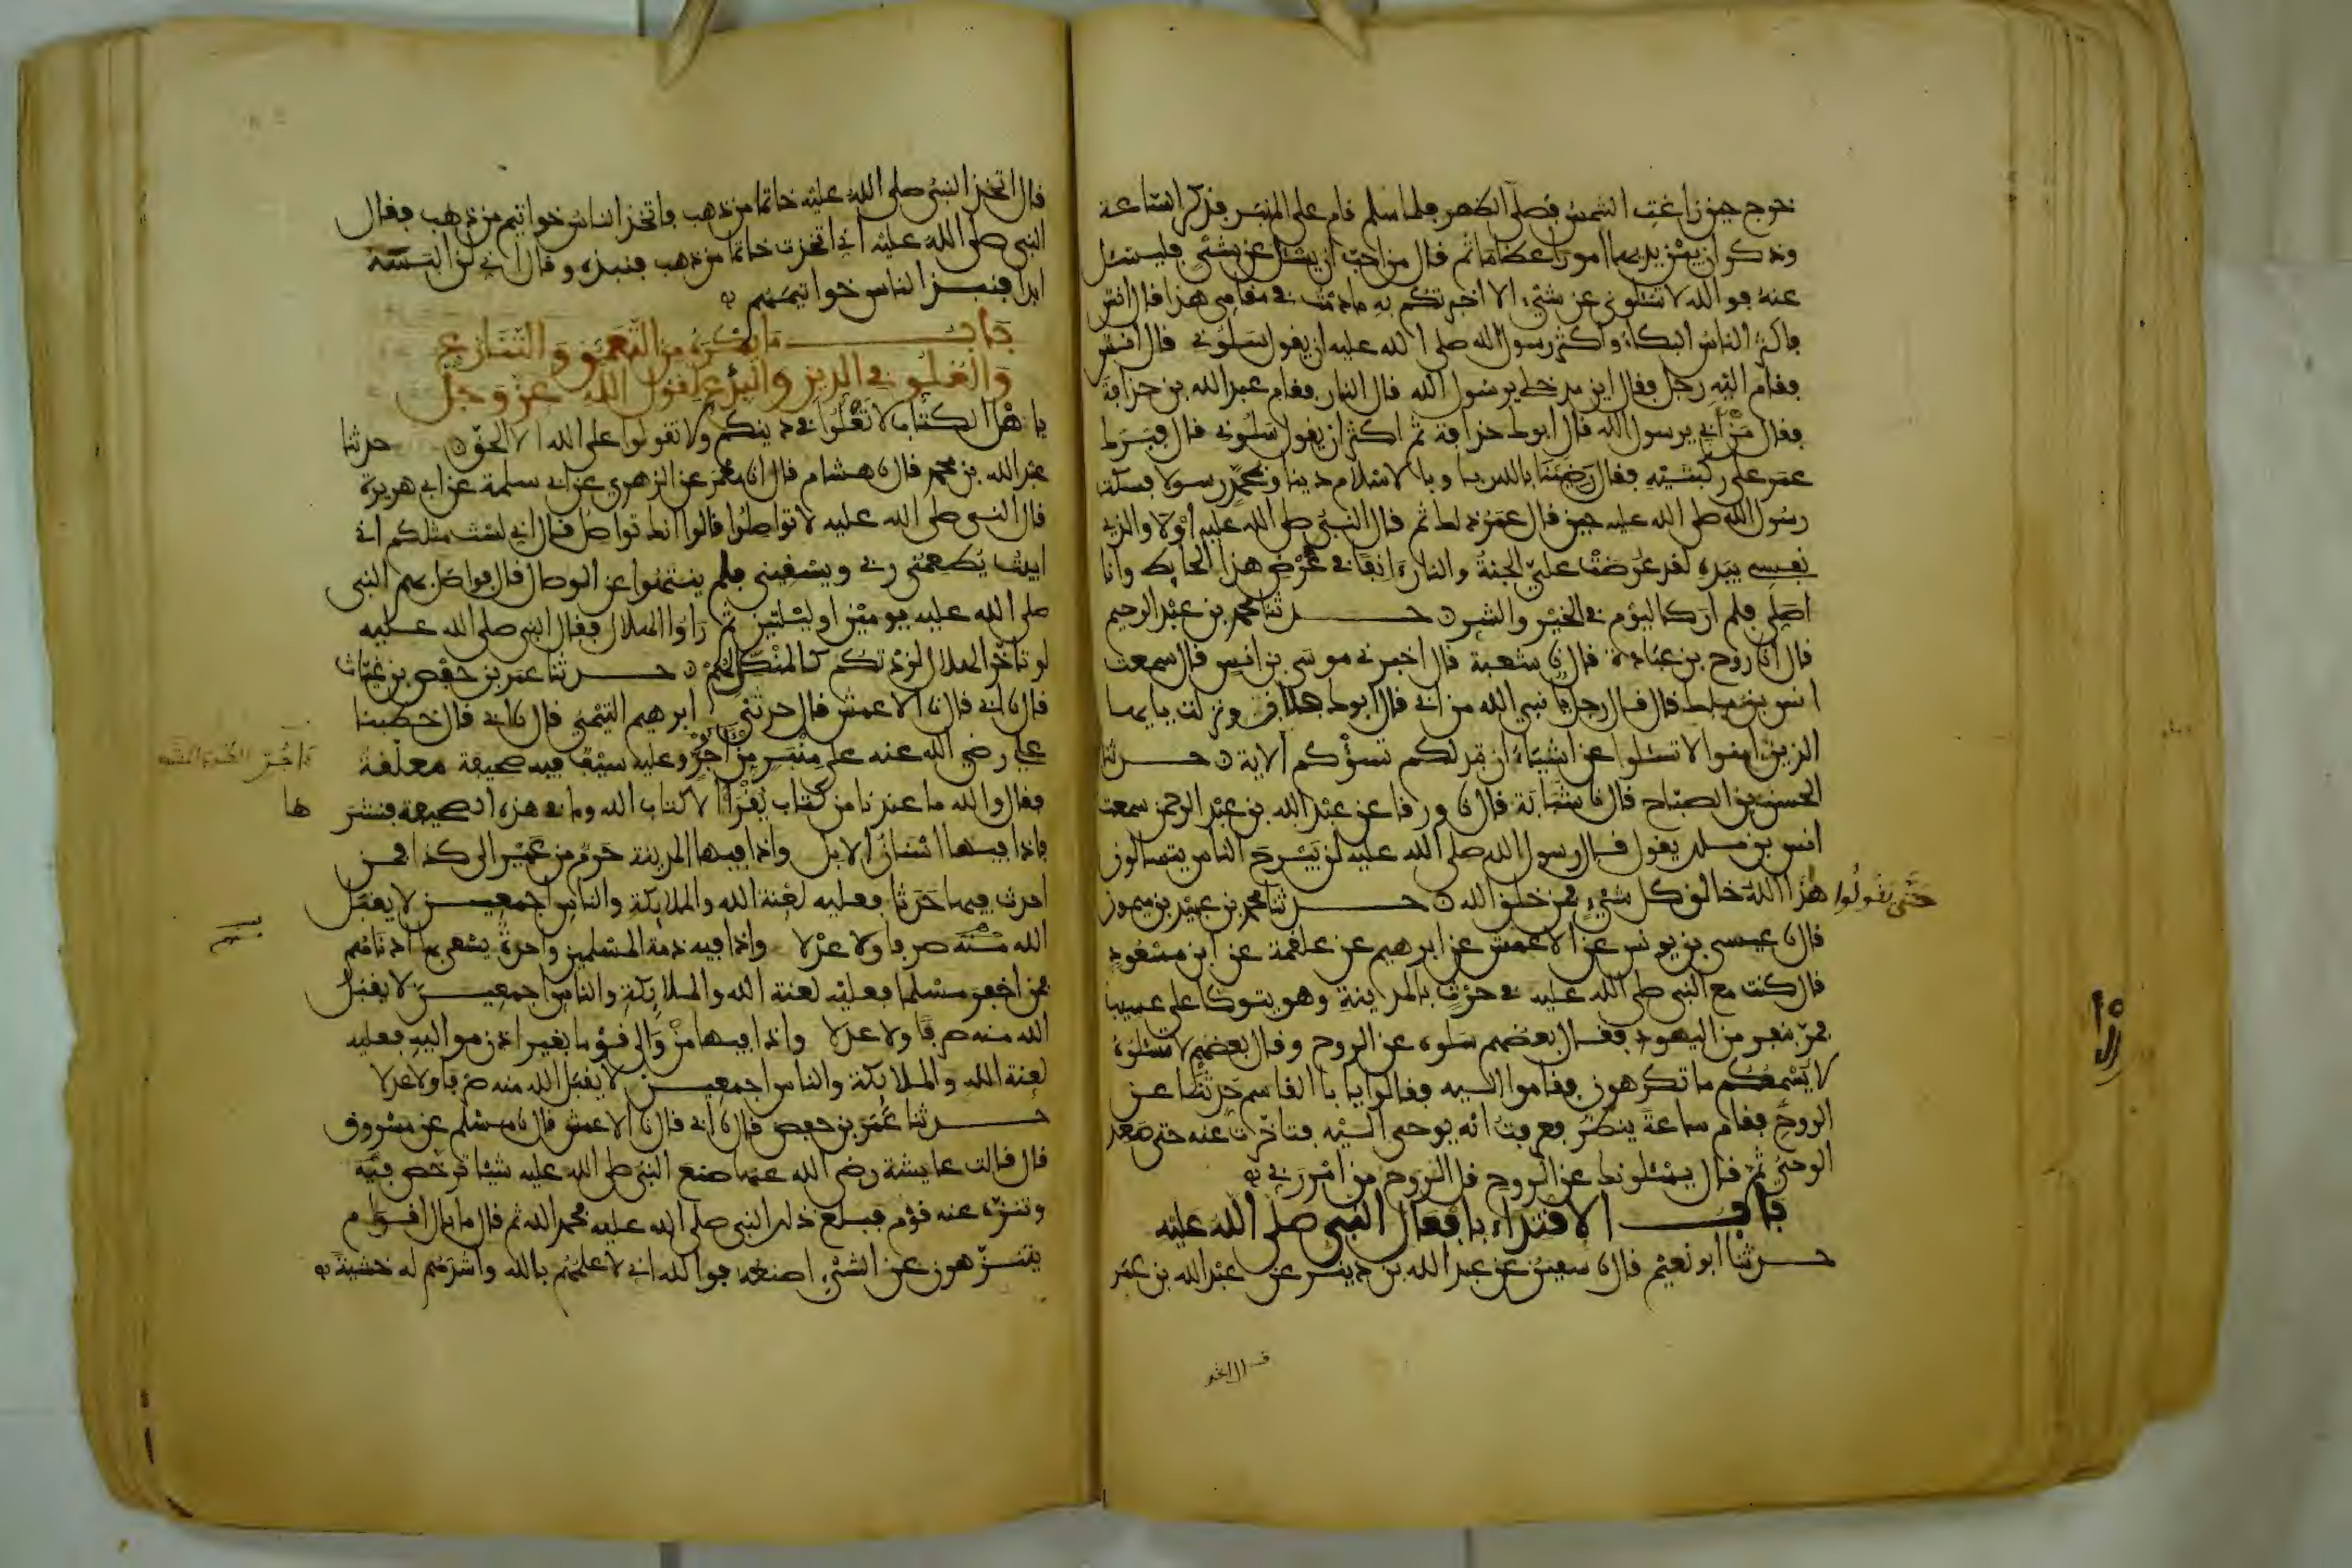 خرج حين زاغت الشمس فصلى الظهر فلما سلم قام على المنبر فذكر الساعة
وذكر ان بين يديها امورا عظاما ثم قال من احب ان يسئل عن شيء فليسئل
عنه فوالله لا تسئلوني عن شيء الا اخبرتكم به ما دمت في مقامي هذا قال انس
فاكثر الناس البكاء واكثر رسول الله صلى الله عليه ان يقول سلوني قال انس
فقام اليه رجل فقال اين مدخلي يرسول الله قال النار فقام عبد الله بن حذافة
فقال من ابي يرسول الله قال ابوك حذافة ثم اكثر ان يقول سلوني قال فبرك
عمر على ركبتيه فقال رضينا بالله ربا وبالاسلام دينا وبمحمد رسولا فسكت
رسول الله صلى الله عليه حين قال عمر ذلك ثم قال النبي صلى الله عليه اولا والذي
نفسي بيده لقد عرضت علي الجنة والنار انفا في عرض هذا الحايط وانا
اصلي فلم ار كاليوم في الخير والشر حدثنا محمد بن عبد الرحيم
قال انا روح بن عبادة قال نا شعبة قال اخبرني موسى بن انس قال سمعت
انس بن ملك قال قال رجل يا نبي الله من ابي قال ابوك فلان ونزلت يايها
الذين امنوا لا تسئلوا عن اشياء ان تبد لكم تسؤكم الاية حدثنا
الحسن بن الصباح قال نا شبابة قال نا ورقا عن عبد الله بن عبد الرحمن سمعت
انس بن ملك يقول قال رسول الله صلى الله عليه لن يبرح الناس يتساءلون
حتى يقولوا هذا الله خالق كل شيء فمن خلق الله حدثنا محمد بن عبيد بن ميمون
قال نا عيسى بن يونس عن الاعمش عن ابرهيم عن علقمة عن ابن مسعود
قال كنت مع النبي صلى الله عليه في حرث بالمدينة وهو يتوكا على عسيب
فمر بنفر من اليهود فقال بعضهم سلوه عن الروح وقال بعضهم لا تسئلوه
لا يسمعكم ما تكرهون فقاموا اليه فقالوا يا با القاسم حدثنا عن
الروح فقام ساعة ينظر فعرفت انه يوحى اليه فتاخرت عنه حتى صعد
الوحي ثم قال يسئلونك عن الروح قل الروح من امر ربي
باب الاقتداء بافعال النبي صلى الله عليه
حدثنا ابو نعيم قال نا سفين عن عبد الله بن دينر عن عبد الله بن عمر
قال اتخذ النبي صلى الله عليه خاتما من ذهب فاتخذ الناس خواتيم من ذهب فقال
النبي صلى الله عليه اني اتخذت خاتما من ذهب فنبذه وقال اني لن البسه
ابدا فنبذ الناس خواتيمهم
باب ما يكره من التعمق والتنازع
والغلو في الدين والبدع لقول الله عز وجل
يا هل الكتاب لا تغلوا في دينكم ولا تقولوا على الله الا الحق حدثنا
عبد الله بن محمد قال نا هشام قال انا معمر عن الزهري عن ابي سلمة عن ابي هريرة
قال النبي صلى الله عليه لا تواصلوا قالوا انك تواصل قال اني لست مثلكم اني
ابيت يطعمني ربي ويسقيني فلم ينتهوا عن الوصال قال فواصل بهم النبي
صلى الله عليه يومين او ليلتين ثم راوا الهلال فقال النبي صلى الله عليه
لو تاخر الهلال لزدتكم كالمنكل لهم حدثنا عمر بن حفص بن غياث
قال نا ابي قال نا الاعمش قال حدثني ابرهيم التيمي قال نا ابي قال خطبنا
علي رضي الله عنه على منبر من اجر وعليه سيف فيه صحيفة معلقة
فقال والله ما عندنا من كتاب يقرا الا كتاب الله وما في هذه الصحيفة فنشر
ها
فاذا فيها اسنان الابل واذا فيها المدينة حرم من عير الى كذا فمن
احدث فيها حدثا فعليه لعنة الله والملايكة والناس اجمعين لا يقبل
الله منه صرفا ولا عدلا واذا فيه ذمة المسلمين واحدة يسعى بها ادناهم
فمن اخفر مسلما فعليه لعنة الله والملايكة والناس اجمعين لا يقبل
الله منه صرفا ولا عدلا واذا فيها من والى قوما بغير اذن مواليه فعليه
لعنة الله والملايكة والناس اجمعين لا يقبل الله منه صرفا ولا عدلا
حدثنا عمر بن حفص قال نا ابي قال نا الاعمش قال نا مسلم عن مسروق
قال قالت عايشة رضي الله عنها صنع النبي صلى الله عليه شيئا ترخص فيه
وتنزه عنه قوم فبلغ ذلك النبي صلى الله عليه فحمد الله ثم قال ما بال اقوام
يتنزهون عن الشيء اصنعه فوالله اني لاعلمهم بالله واشدهم له خشية